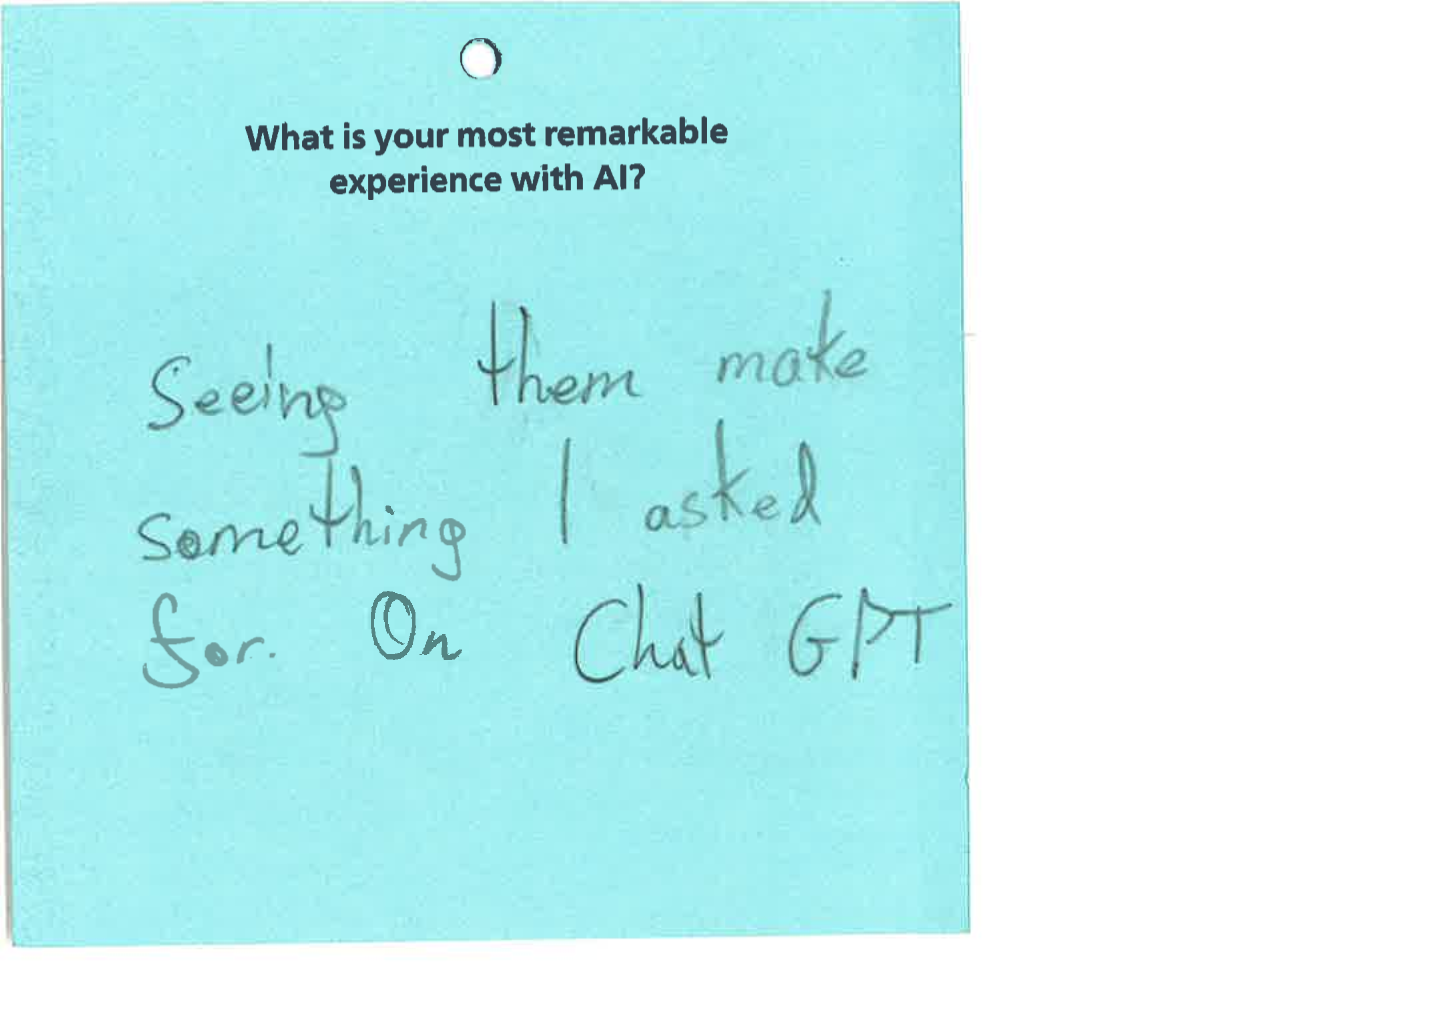 What is your most remarkable
experience with AI?
Seeing them make
something I asked
for. On Chat GPT